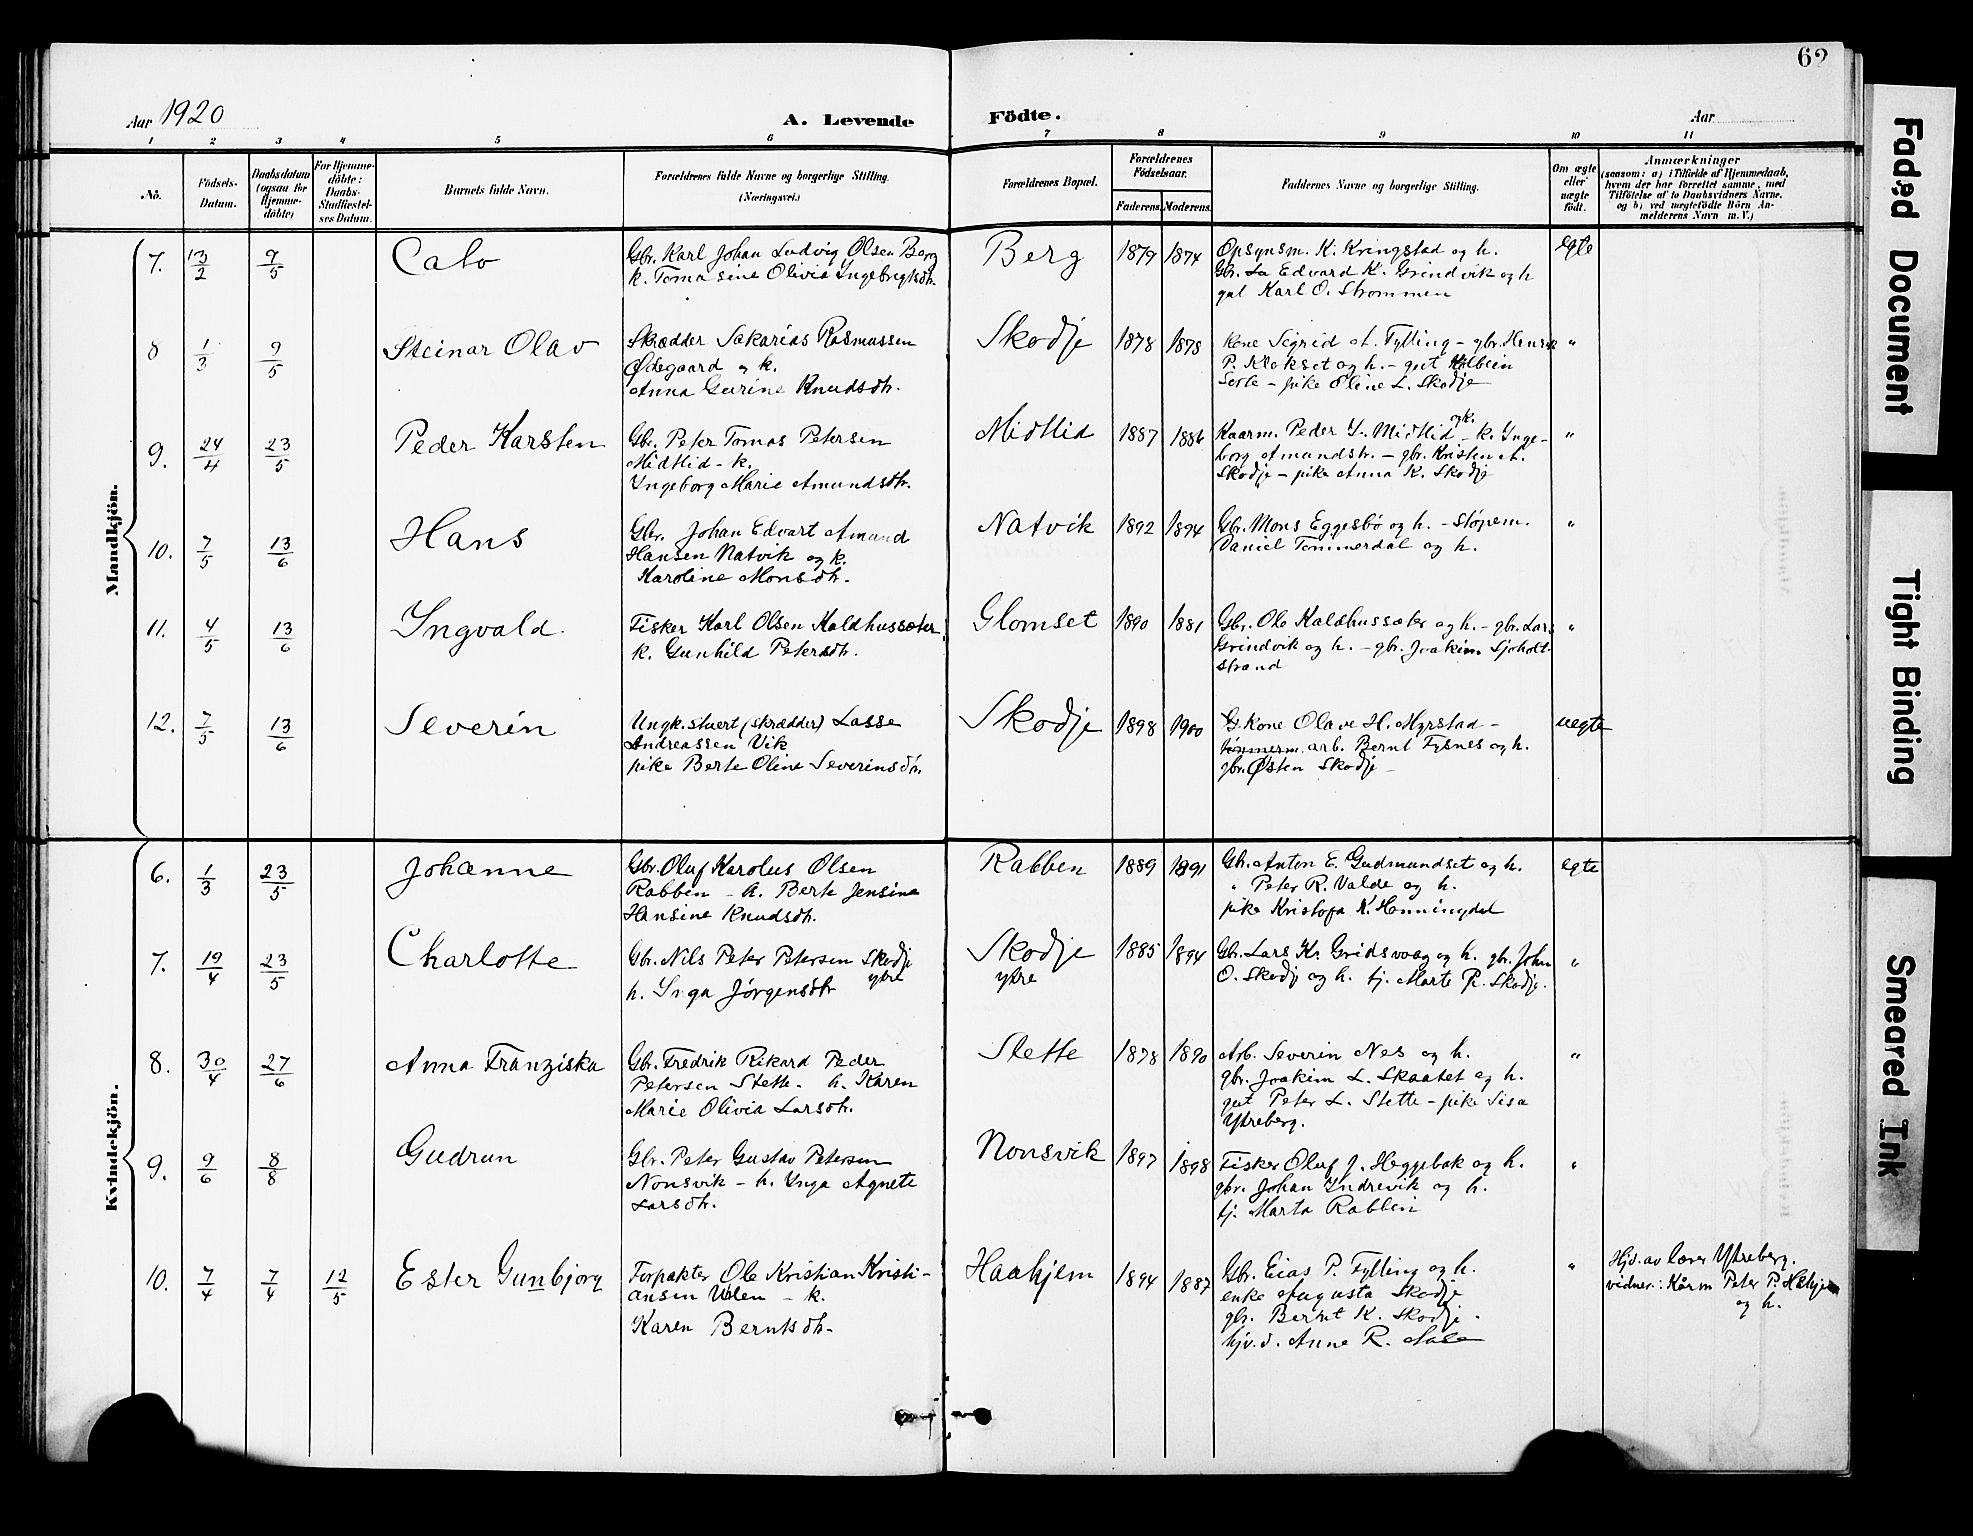 62
Aar 1920
A. Levende
Födte.
Aar
1 2 3 4 5 6 7 8 9 10 11
No.
Födsels-
Datum.
Daabsdatum
(ogsaa for
Hjemme-
döbte)
For Hjemme-
döbte:
Daabs-
Stadfæstel-
ses Datum.
Barnets fulde Navn.
Forældrenes fulde Navne og borgerlige Stilling.
(Næringsvei.)
Forældrenes Bopæl.
Forældrenes
Födselsaar.
Faderens.
Moderens.
Faddernes Navne og borgerlige Stilling.
Om ægte
eller
uægte
födt.
Anmærkninger
(saasom: a) i Tilfælde af Hjemmedaab,
hvem der har forrettet samme, med
Tilföielse af to Daabsvidners Navne,
og b) ved uægtefödte Börn An-
melderens Navn m. V.)
Mandkjön.
7. 13/2 9/5 Cato
Gbr. Karl Johan Ludvig Olsen Berg
k. Tomasine Olivia Ingebrigtsdtr.
Berg 1879 1874
Opsynsm. K. Kringstad og h.
Gbr. Edvard K. Grindvik og h
gut Karl O. Strømmen
egte
8 1/3 9/5 Steinar Olav
Skrædder Sakarias Rasmussen
Ødegaard og k.
Anna Gurine Knudsdtr.
Skodje 1878 1878
Kone Sigrid A. Fylling - gbr. Henrik
P. Klokset og h. - gut
- pike Oline L. Skodje
"
9. 24/4 23/5 Peder Karsten
Gbr. Peter Tomas Petersen
Midtlid - k.
Ingeborg Marie Amundsdtr.
Midtlid 1887 1886
og k.
Kaarm. Peder L. Midtlid - k. Inge-
borg Amundstr. - gbr. Kristen A.
Skodje - pike Anna K. Skodje
"
10. 7/5 13/6 Hans
Gbr. Johan Edvart Amund
Hansen Natvik og k.
Karoline Monsdtr.
Natvik 1892 1894
Gbr. Mons Eggesbø og h. - støpem.
Daniel Tømmerdal og h.
"
11. 4/5 13/6 Yngvald
Fisker Karl Olsen Kaldhussæter
k. Gunhild Petersdtr.
Glomset 1890 1881
Gbr. Ole Kaldhussæter og h. - gbr. Lars
Grindvik og h. - gbr. Joakim Sjøholt-
strand
"
12. 7/5 13/6 Severin
Ungk. stuert (skrædder) Lasse
Andreassen Vik
pike Berte Oline Severinsdtr.
Skodje 1898 1900
G. Kone Olave H. Myrstad -
tømmerm. arb. Bernt Fysnes og h.
gbr. Østen Skodje -
uegte
Kvindekjön.
6. 1/3 23/5 Johanne
Gbr. Oluf Karolus Olsen
Rabben - h. Berte Jensine
Hansine Knudsdtr.
Rabben 1889 1891
Gbr. Anton E. Gudmundset og h.
" Peter R. Valde og h.
pike Kristofa K. Henningdal
egte
7. 19/4 23/5 Charlotte
Gbr. Nils Peter Petersen Skodje
ytre
h. Inga Jørgensdtr
Skodje
ytre
1885 1894
Gbr. Lars Kr. Gridsvaag og h. gbr. John
O. Skodje og h. tj. Marte P. Skodje.
"
8. 30/4 27/6 Anna Franziska
Gbr. Fredrik Rikard Peder
Petersen Stette - h. Karen
Marie Olivia Larsdtr.
Stette 1878 1890
Arb. Severin Nes og h.
gbr. Joakim L. Skaatet og h.
gut Peter L. Stette - pike Sisa
Ytreberg.
"
9. 9/6 8/8 Gudrun
Gbr. Peter Gustav Petersen
Nonsvik - h. Inga Agnete
Larsdtr.
Nonsvik 1897 1898
Fisker Oluf J. Heggebak og h.
gbr. Johan Indrevik og h.
tj. Marta Rabben
"
10. 7/4 7/4 12/5 Ester Gunbjørg
Forpakter Ole Kristian Kristi-
ansen - k.
Karen Berntsdtr.
Haahjem 1894 1887
Gbr. Eias P. Fylling og h.
enke Augusta Skodje
gbr. Bernt K. Skodje.
hjv.d. Anne R.
"
Hjd. av lærer Ytreberg.
vidner: Kårm Peter P. Håhjem
og h.
Faded Document
Tight Binding
Smeared Ink